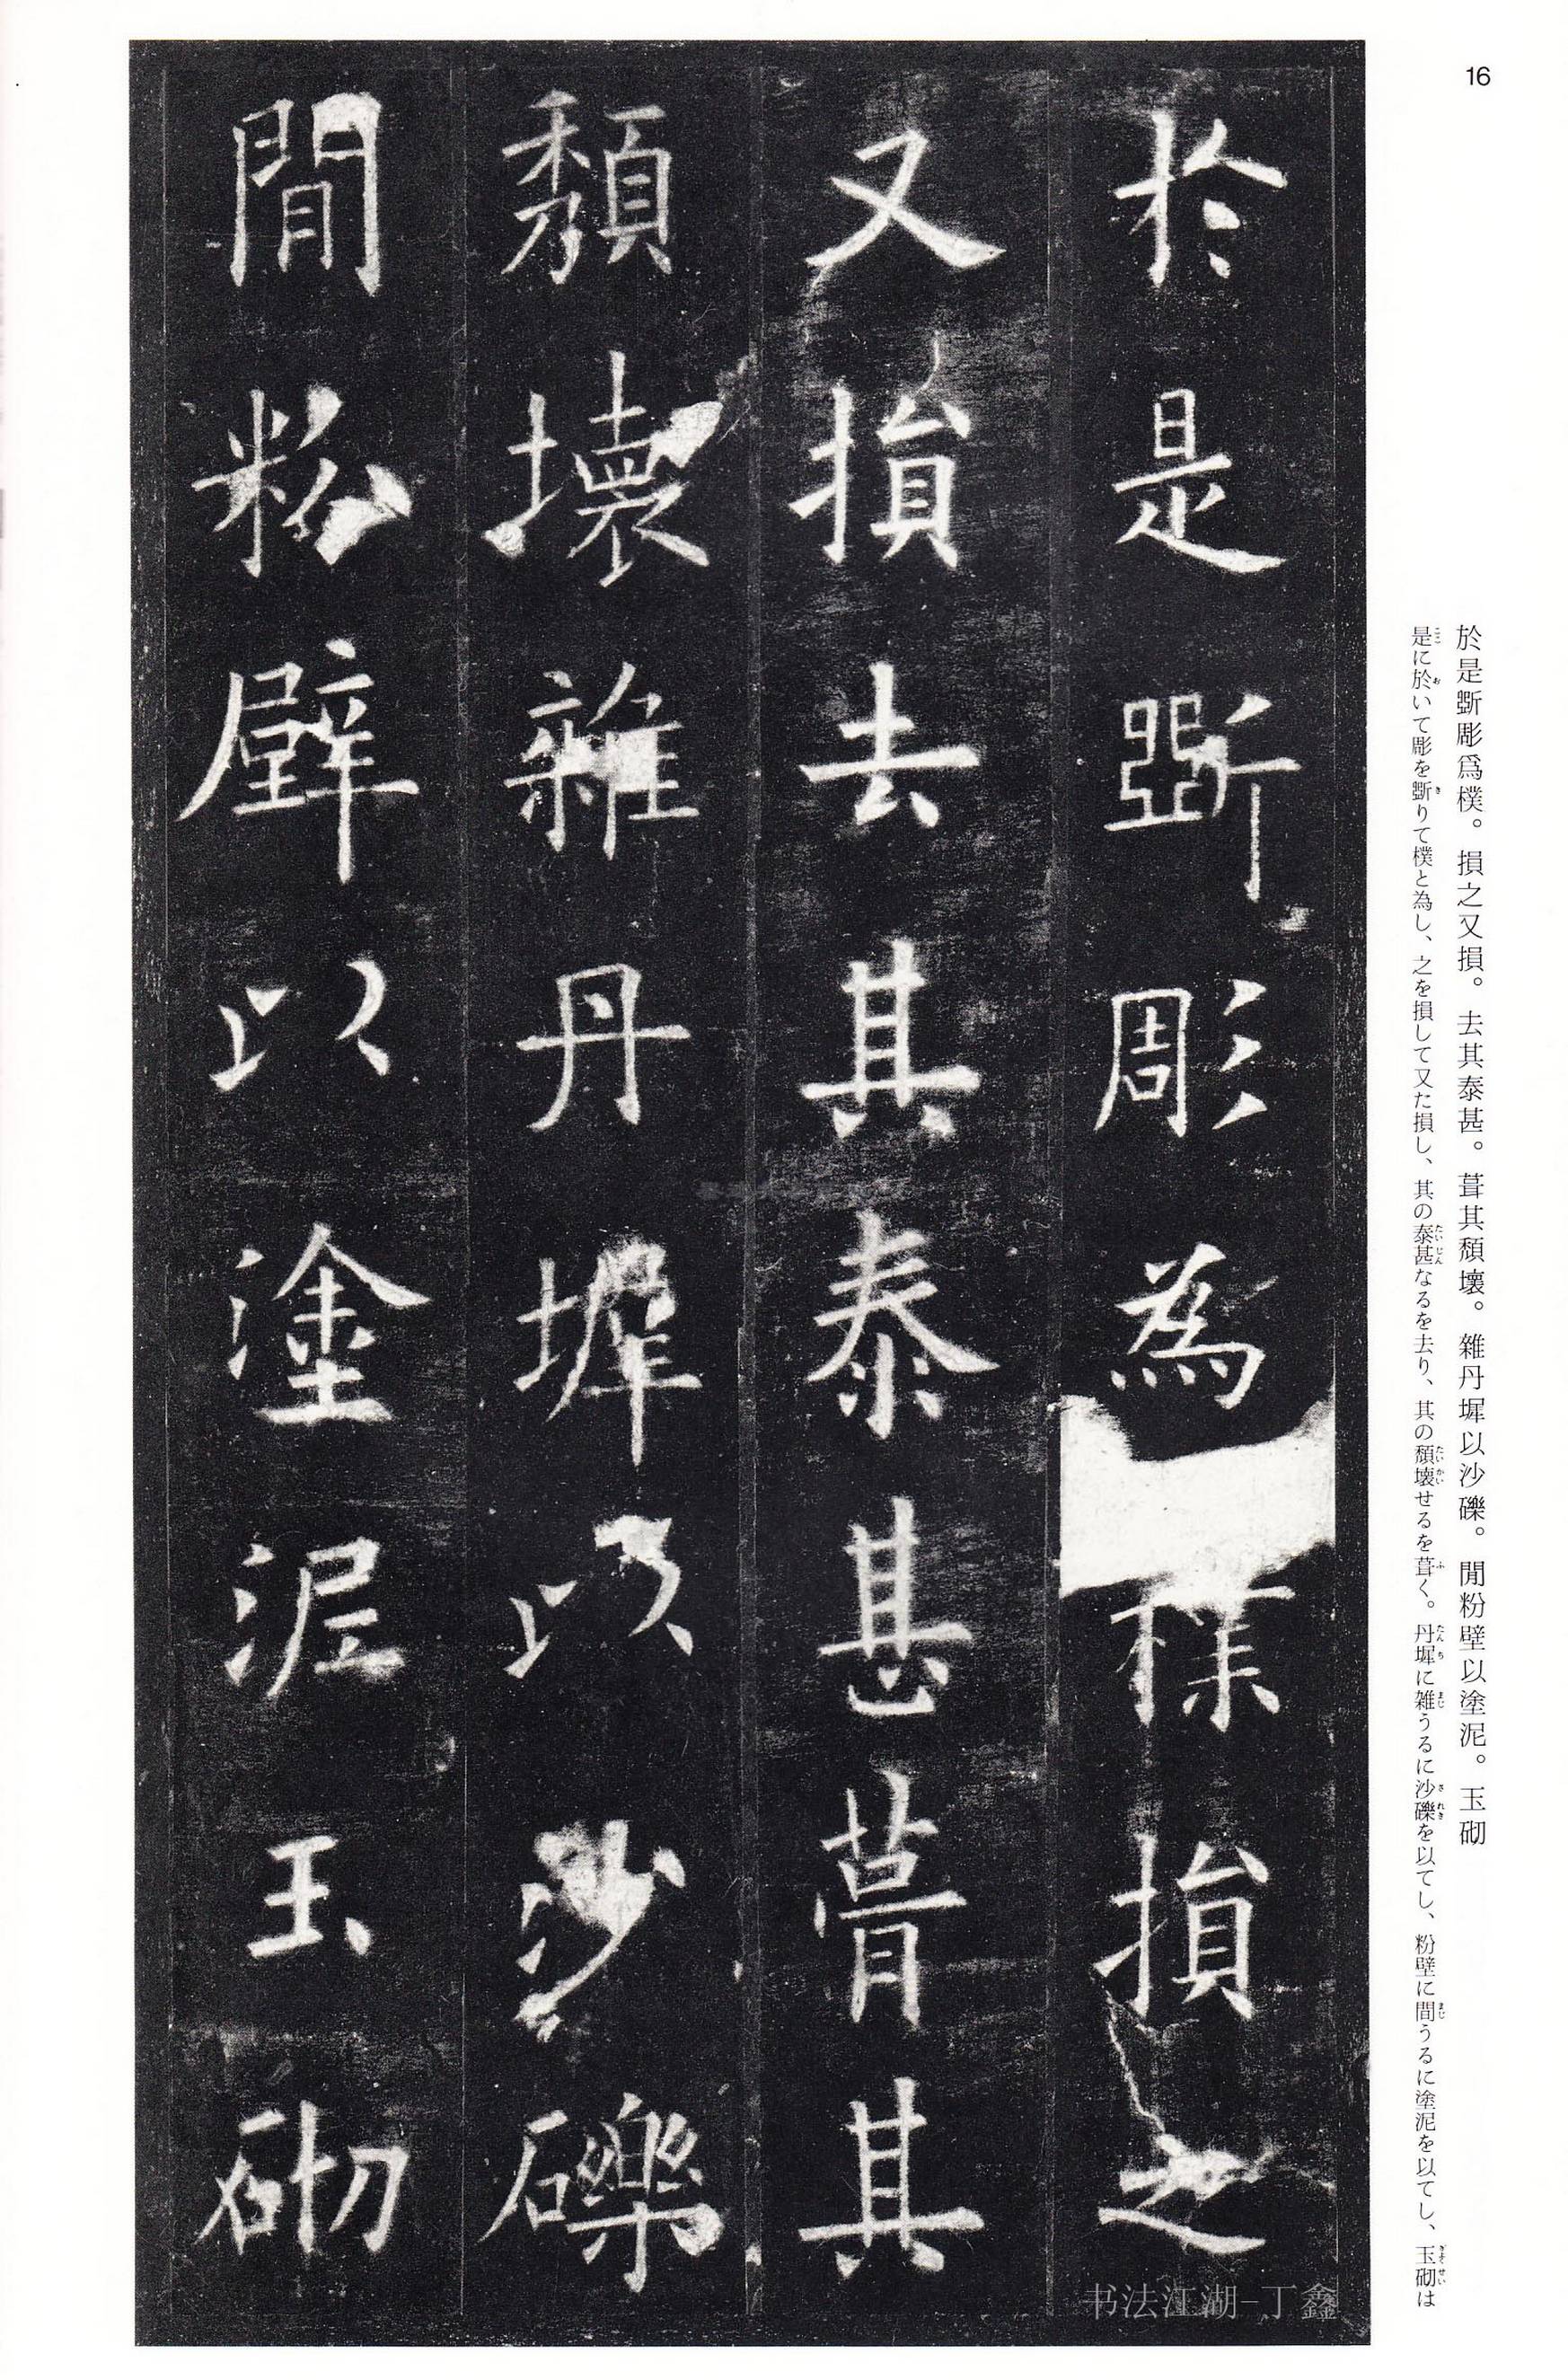 16
於是斵彫爲樸。損之又損。去其泰甚。葺其頽壞。雜丹墀以沙礫。閒粉壁以塗泥。玉砌
是に於いて彫を斵りて樸と為し、之を損して又た損し、其の泰甚なるを去り、其の頽壊せるを葺く。丹墀に雑うるに沙礫を以てし、粉壁に間うるに塗泥を以てし、玉砌は
於是斵彫為樸損之
又損去其泰甚葺其
頽壞雜丹墀以沙礫
閒粉壁以塗泥玉砌
书法江湖-丁鑫